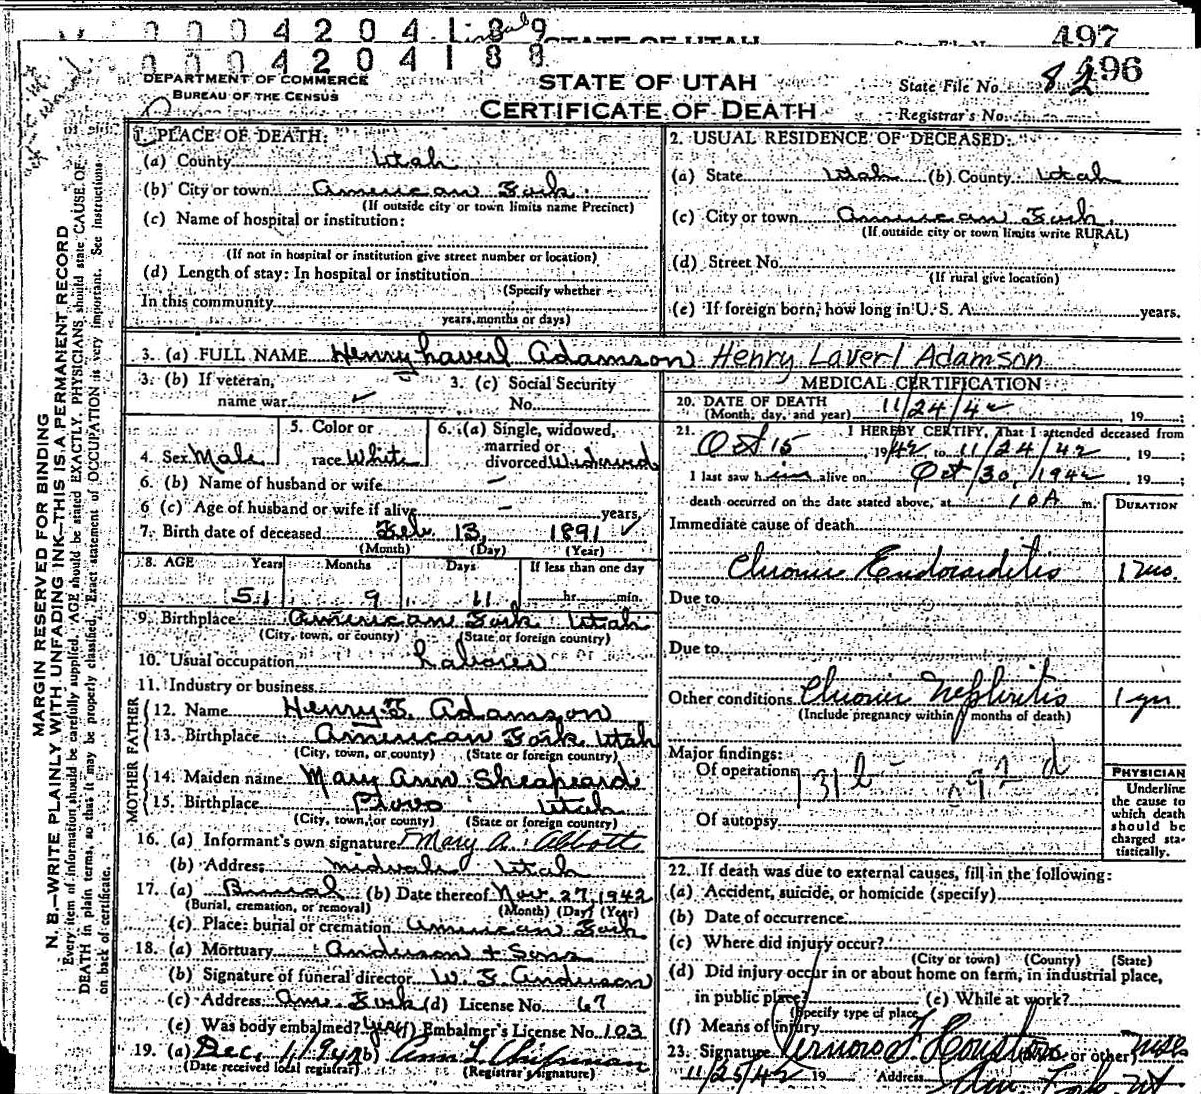 0 0 0 4 2 0 4 1 8 9
STATE OF UTAH
497
0 0 0 4 2 0 4 1 8 8
496
DEPARTMENT OF COMMERCE
BUREAU OF THE CENSUS
STATE OF UTAH
CERTIFICATE OF DEATH
State File No. 82
Registrar's No.
MARGIN RESERVED FOR BINDING
N. B.—WRITE PLAINLY WITH UNFADING INK—THIS IS A PERMANENT RECORD
Every item of information should be carefully supplied. AGE should be stated EXACTLY. PHYSICIANS should state CAUSE OF
DEATH in plain terms, so that it may be properly classified. Exact statement of OCCUPATION is very important. See instructions
on back of certificate.
1. PLACE OF DEATH:
(a) County Utah
(b) City or town American Fork
(If outside city or town limits name Precinct)
(c) Name of hospital or institution:
(If not in hospital or institution give street number or location)
(d) Length of stay: In hospital or institution
(Specify whether
In this community
years, months or days)
2. USUAL RESIDENCE OF DECEASED:
(a) State Utah (b) County Utah
(c) City or town American Fork
(If outside city or town limits write RURAL)
(d) Street No.
(If rural give location)
(e) If foreign born, how long in U. S. A. years.
3. (a) FULL NAME Henry Laverl Adamson Henry Laverl Adamson
3. (b) If veteran,
name war ✓
3. (c) Social Security
No.
4. Sex Male
5. Color or
race White
6. (a) Single, widowed,
married or
divorced Widowed
6. (b) Name of husband or wife –
6 (c) Age of husband or wife if alive – years
7. Birth date of deceased Feb. 13, 1891 ✓
(Month) (Day) (Year)
8. AGE Years Months Days If less than one day
51 9 11 hr. min.
9. Birthplace American Fork Utah
(City, town, or county) (State or foreign country)
10. Usual occupation Laborer
11. Industry or business
FATHER
12. Name Henry F. Adamson
13. Birthplace American Fork Utah
(City, town, or county) (State or foreign country)
MOTHER
14. Maiden name Mary Ann Sheapeard
15. Birthplace Provo Utah
(City, town, or county) (State or foreign country)
16. (a) Informant's own signature Mary A. Abbott
(b) Address Midvale Utah
17. (a) Burial (b) Date thereof Nov. 27, 1942
(Burial, cremation, or removal) (Month) (Day) (Year)
(c) Place: burial or cremation American Fork
18. (a) Mortuary Anderson + Sons
(b) Signature of funeral director W. F. Anderson
(c) Address Am. Fork (d) License No. 67
(e) Was body embalmed? yes (f) Embalmer's License No. 103
19. (a) Dec. 1, 1942 (b) Ann L. Chipman
(Date received local registrar) (Registrar's signature)
MEDICAL CERTIFICATION
20. DATE OF DEATH
(Month, day, and year) 11/24/42, 19 ;
21. I HEREBY CERTIFY, That I attended deceased from
Oct 15, 1942, to 11/24/42, 19 ;
I last saw him alive on Oct/30, 1942, 19 ;
death occurred on the date stated above, at 10 A m.
DURATION
Immediate cause of death
Chronic Endocarditis
Due to
Due to
Other conditions Chronic Nephritis 1 yr
(Include pregnancy within months of death)
Major findings:
Of operations 131b 92d
Of autopsy
PHYSICIAN
Underline
the cause to
which death
should be
charged sta-
tistically.
22. If death was due to external causes, fill in the following:
(a) Accident, suicide, or homicide (specify)
(b) Date of occurrence
(c) Where did injury occur?
(City or town) (County) (State)
(d) Did injury occur in or about home on farm, in industrial place,
in public place? (e) While at work?
(Specify type of place)
(f) Means of injury
23. Signature Vernors F Houston or other)
11/25/42 19 Address Am Fork, Ut